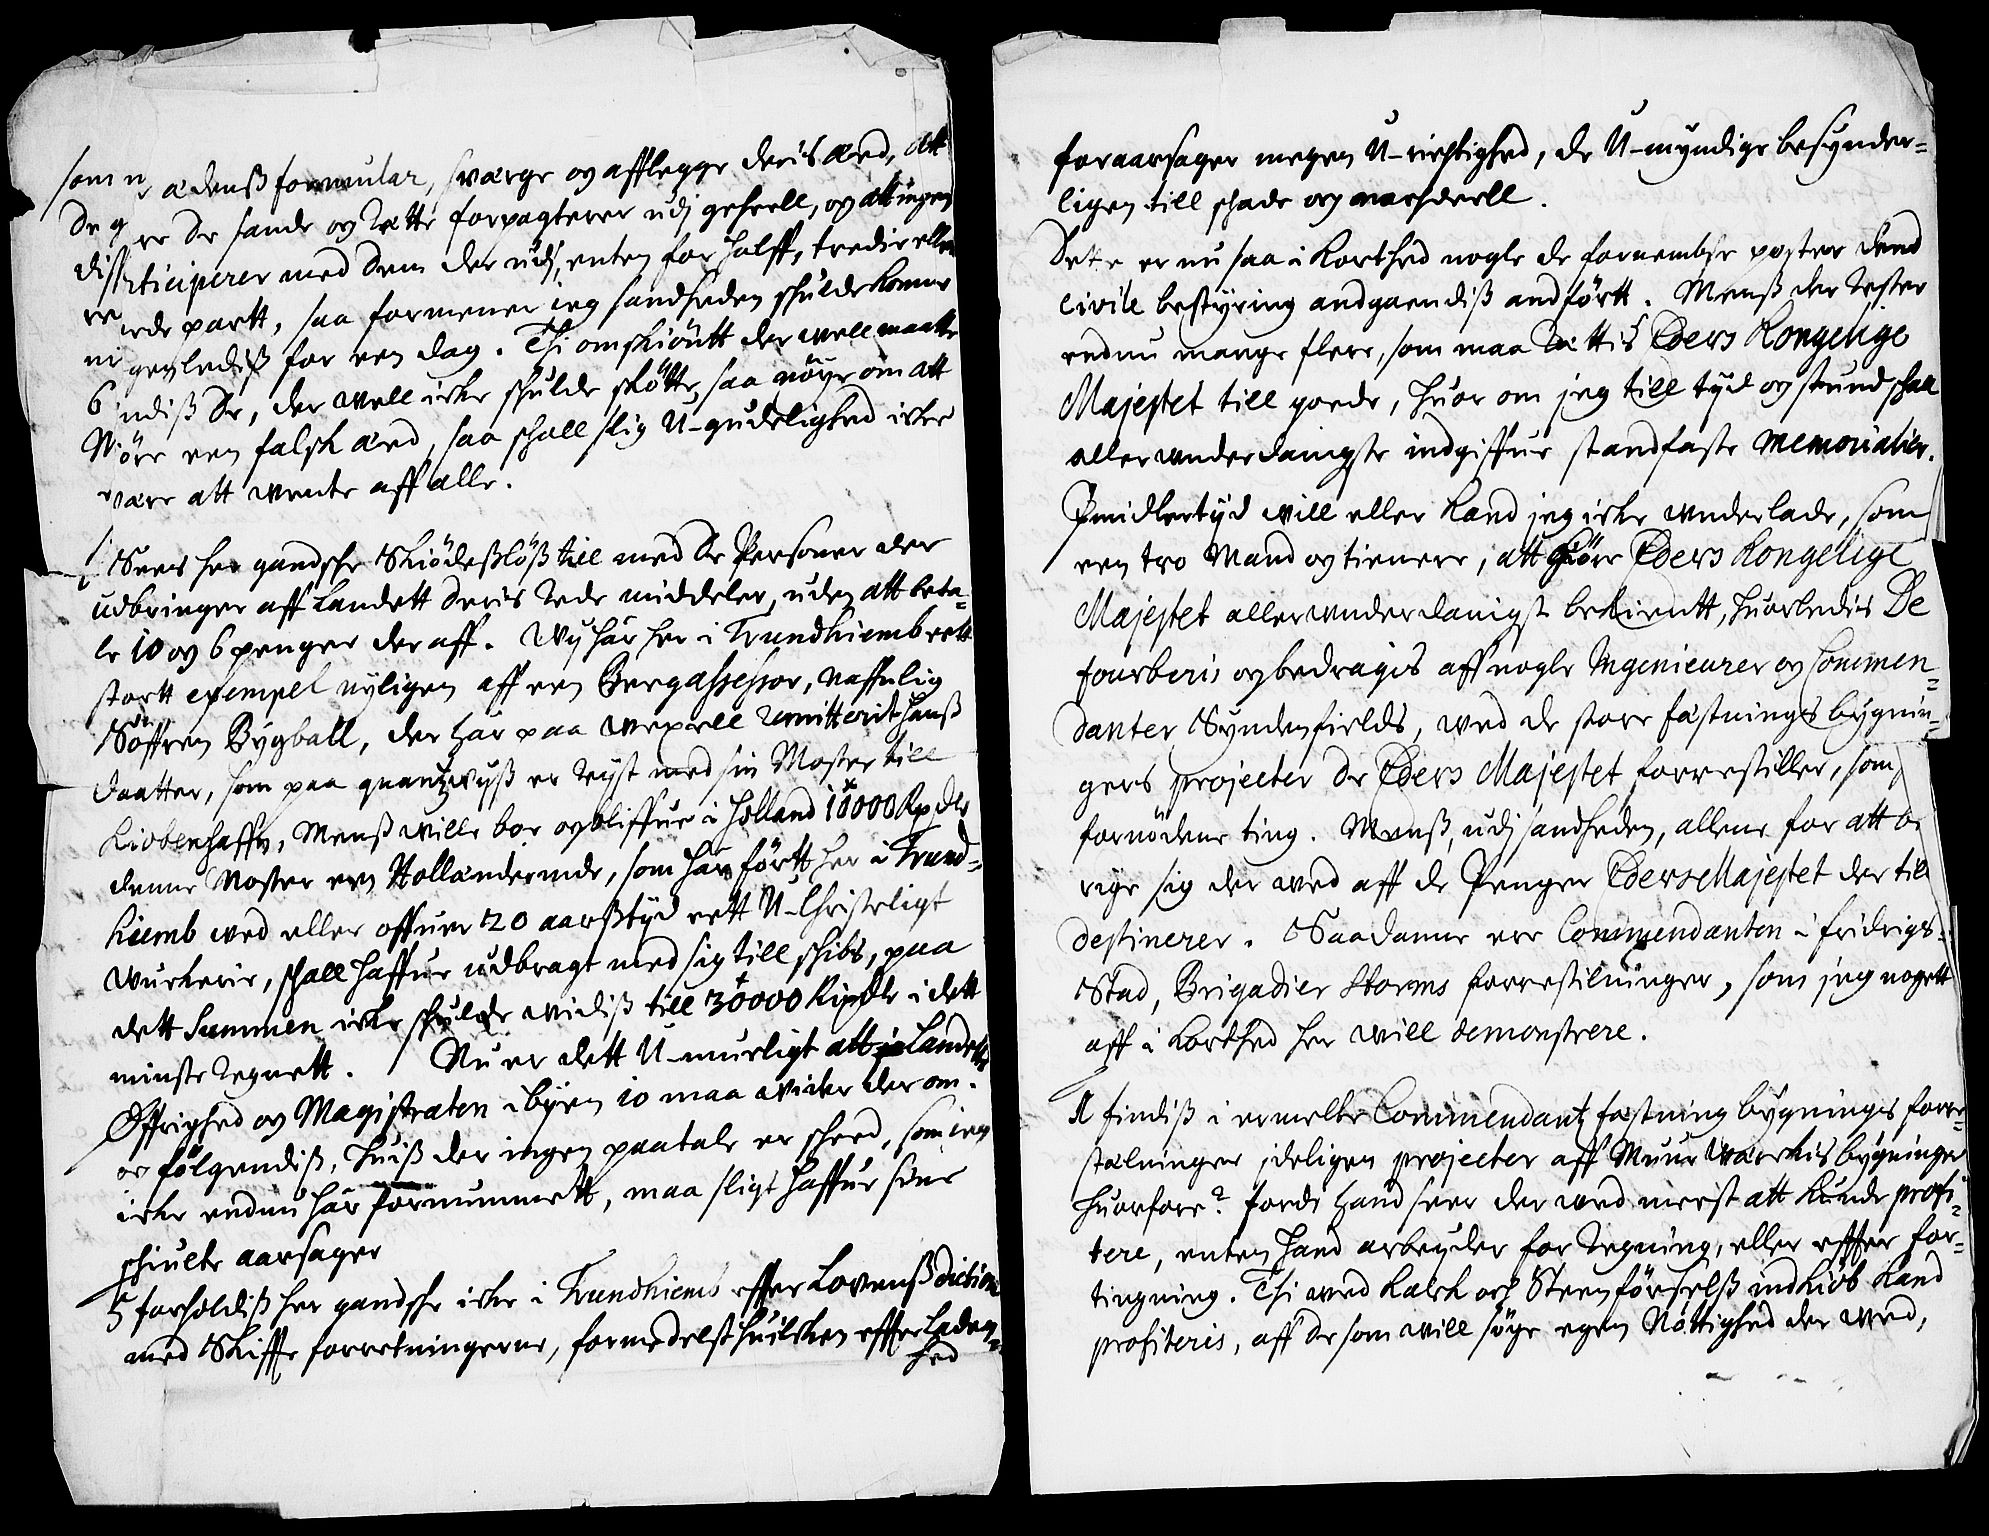 som n ædenß formular, sværge og afflegge deris æed, att
de e re de sande og rætte forpagterer udj geheell, og att ingen
diss rticiperer med dem der udj, enten for halff, tredie eller
re rde partt, saa formener ieg sandheden schulde komme
ni genledeß for een dag. Thi omskiöntt der well maatte
6 ndiß de, der well icke schulde skötte saa nöye om att
giöre een falsk æed, saa schall slig U-gudelighed icke
være att wente aff alle.
Sees her gandsche Skiödeßlöß till med de Personer der
udbringer aff Landett deris rede middeler, uden att beta-
le 10 og 6 penger der aff. Wy har her i Trundhiemb eett
stortt exempel nyligen aff een Bergassessor, naffnlig
Söffren Bygball, der har paa wexell remitterit hanß
daatter, som paa quantzwyß er reyst med sin Moster till
Kiöbenhaffn, Menß wille boe og bliffue i Holland 10000 Rixdlr
denne Moster een Hollænderinde, som har förtt her i Trund-
hiemb wed eller offuer 20 aarß tyd eett U-Christeligt
wurkerie, schall haffue udbragt med sig till schibs, paa
dett Summen icke schulde widiß till 30000 Rixdlr i dett
minste regnett. Nu er dett U-mueligt att jo Landets
Öffrighed og Magistraten i byen jo maa wide der om.
or fölgendiß, huiß der ingen paatale er scheed, som ieg
icke endnu har fornummett, maa sligt haffue sine
schiulte aarsager
5 forholdiß her gandsche icke i Trundhiemb effter Lovenß diction
med Skiffte forretningerne, formedelst huilchen effterladen-
hed
foraarsager megen U-richtighed, de U-myndige besynder-
ligen till schade og nachdeell.
Dette er nu saa i korthed nogle de fornembste poster dend
civile bestyring andgaaendiß andförtt. Menß der rester
endnu mange flere, som maa rættis Eders Kongelige
Majestet till goede, huor om jeg till tyd og stund schall
allerunderdanigste indgiffue standfaste memorialier.
Jmidlertyd will eller kand jeg icke underlade, som
een tro Mand og tienere, att giöre Eders Kongelige
Majestet allerunderdanigst bekiendtt, huorledis De
fourberis og bedragis aff nogle Ingenieurer og Commen-
danter Syndenfields, wed de store fæstnings bygnin-
gers projecter de Eders Majestet forrestiller, som
fornödene ting. Menß, udj sandheden, allene for att be
rige sig der wed aff de Penger Eders Majestet der till
destinerer. Saadanne ere Commendanten i Fridrigs-
Stad, Brigadier Storms forrestilninger, som jeg nogett
aff i korthed her will demonstrere.
A findiß i ermelte Commendantz fæstning bygnings forre-
stælninger jdeligen projecter aff Muur Wærckis bygninger
huorfore? fordi hand seer der wed meest att kunde profi-
tere, enten hand arbeyder for Regning, eller effter for-
tingning. Thi wed Kalck och Steen förselß indkiöb kand
profiteris, aff de som will söge egen Nöttighed der wed,